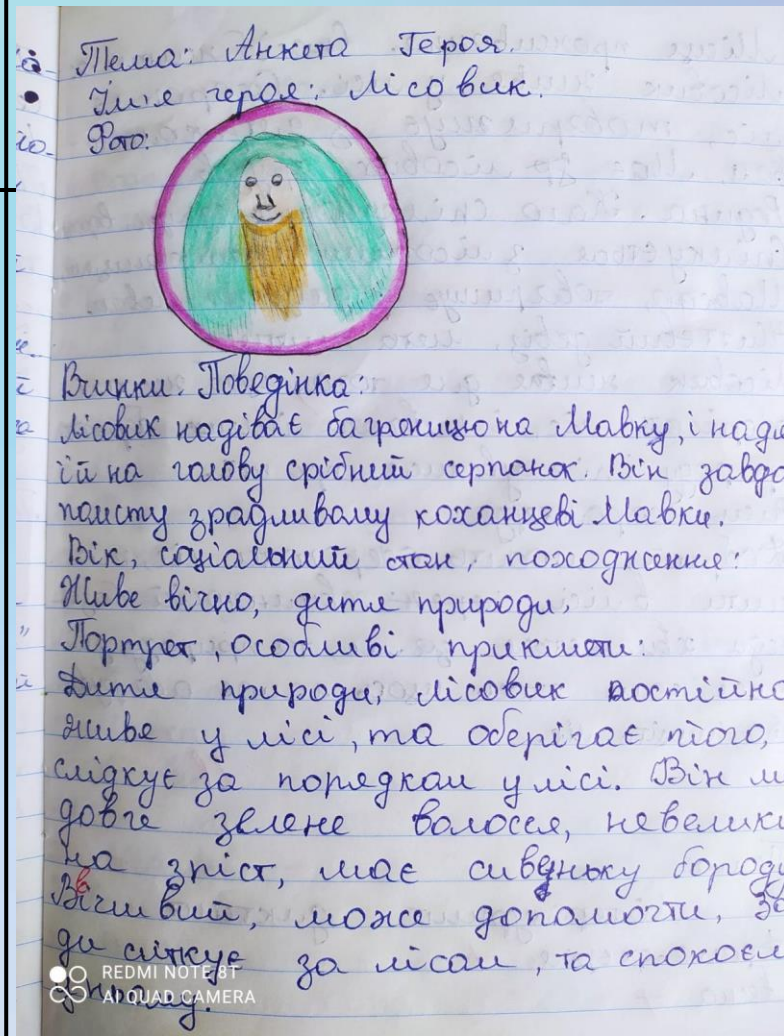 Тема: Анкета Героя.
Ім'я героя: Лісовик.
Фото:
Вчинки. Поведінка:
Лісовик надіває багряницю на Мавку, і наді
їй на голову срібний серпанок. Він завда
помсту зрадливому коханцеві Мавки.
Вік, соціальний стан, походження:
Живе вічно, дитя природи.
Портрет, особливі прикмети:
Дитя природи, лісовик постійно
живе у лісі, та оберігає його,
слідкує за порядком у лісі. Він м
довге зелене волосся, невелики
на зріст, має сивеньку бороду
Вічливий, може допомогти, За
ди слідкує за лісом, та спокоєм
у ньому.
REDMI NOTE 8T
AI QUAD CAMERA